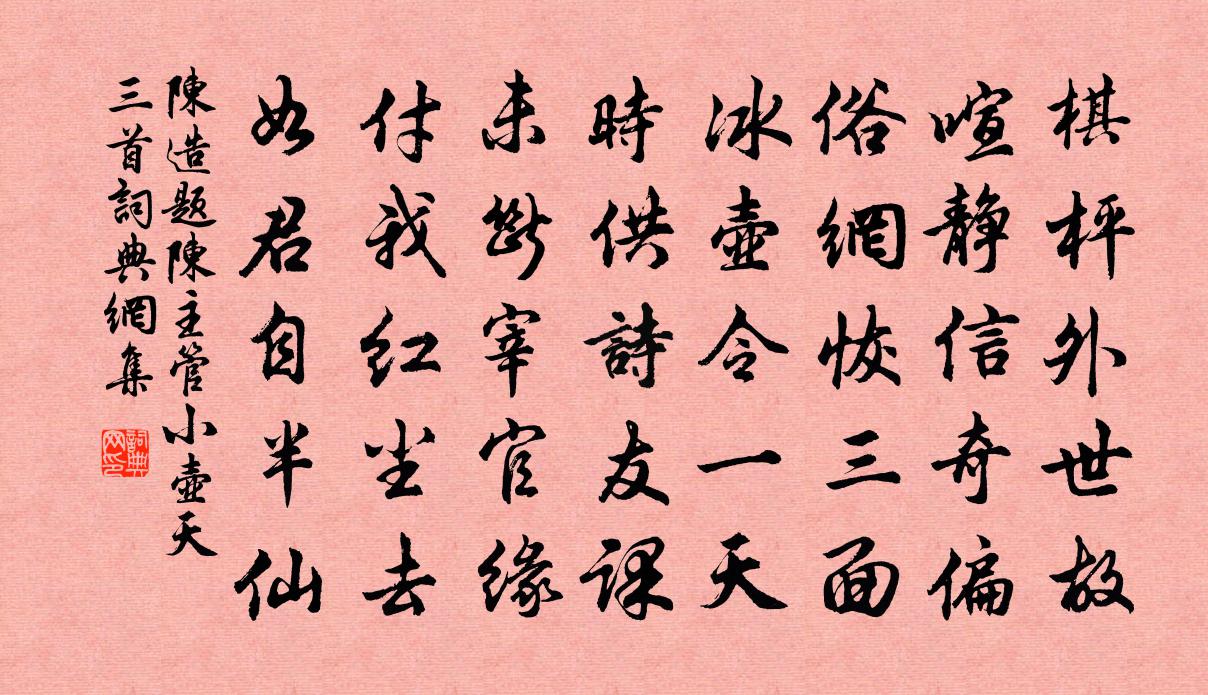 棋枰外世故
喧静信奇偏
俗網恢三面
冰壺令一天
時供詩友課
未斷宰官緣
付我红尘去
如君自半仙
陳造题陳主管小壺天
三首詞典網集
詞典網印